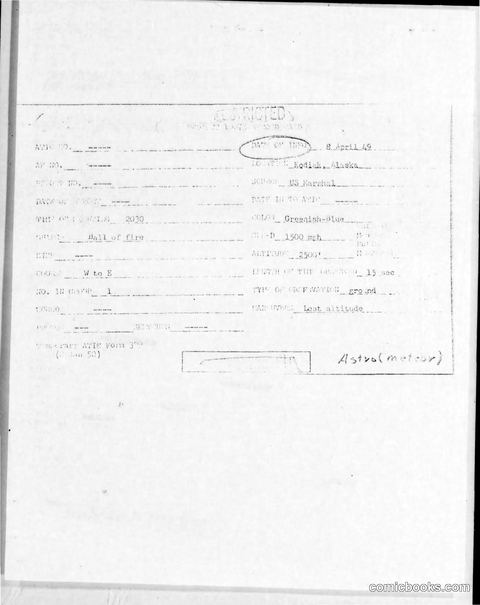 RESTRICTED
ATIC NO. ----- DATE OF INFO 8 April 49
AF NO. ----- LOCATION Kodiak, Alaska
REPORT NO. ---- SOURCE US Marshal
DATE OF REPORT ---- DATE IN TO ATIC -----
TIME OF SIGHTING 2030 COLOR Greenish-Blue
SHAPE Ball of fire SPEED 1500 mph
SIZE --- ALTITUDE 2500'
COURSE W to E LENGTH OF TIME OBSERVED 15 sec
NO. IN GROUP 1 TYPE OF OBSERVATION ground
SOUND ---- MANEUVERS Lost altitude
PHOTOS --- SKETCHES -----
Temporary ATIC Form 329
(2 Jan 52)
Astro (meteor)
comicbooks.com